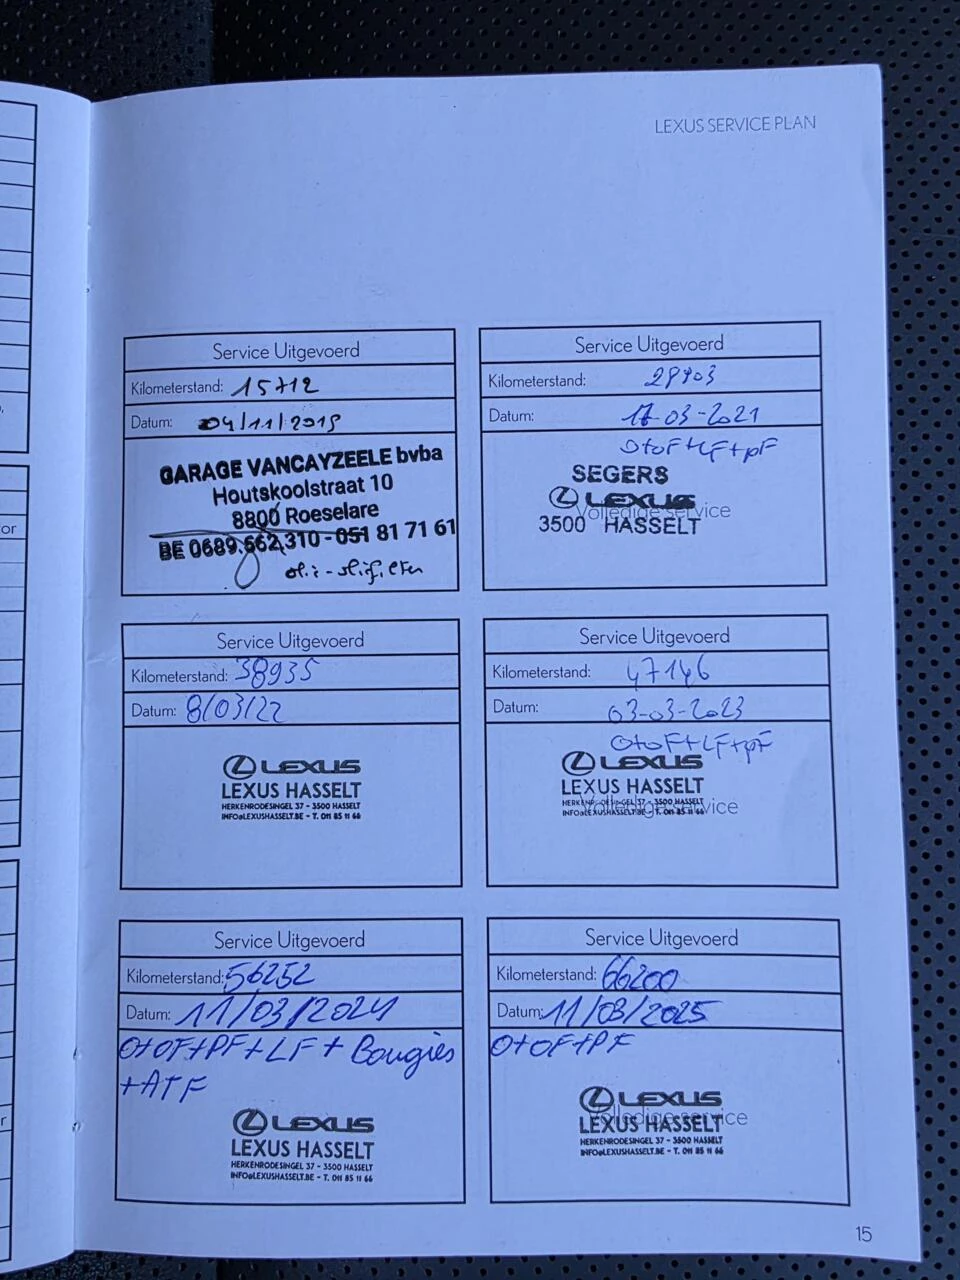 LEXUS SERVICE PLAN
Service Uitgevoerd
Kilometerstand: 15712
Datum: 04/11/2019
GARAGE VANCAYZEELE bvba
Houtskoolstraat 10
8800 Roeselare
BE 0689.662.310 - 051 81 71 61
olie - oliefilter
Service Uitgevoerd
Kilometerstand: 28903
Datum: 17-03-2021
O+oF+LF+pF
SEGERS
LEXUS
Volledige service
3500 HASSELT
Service Uitgevoerd
Kilometerstand: 38935
Datum: 8/03/22
LEXUS
LEXUS HASSELT
HERKENRODESINGEL 37 - 3500 HASSELT
INFO@LEXUSHASSELT.BE - T. 011 85 11 66
Service Uitgevoerd
Kilometerstand: 47146
Datum: 03-03-2023
O+oF+LF+pF
LEXUS
LEXUS HASSELT
HERKENRODESINGEL 37 - 3500 HASSELT
Volledige service
INFO@LEXUSHASSELT.BE - T. 011 85 11 66
Service Uitgevoerd
Kilometerstand: 56252
Datum: 11/03/2024
O+OF+PF+LF + Bougies
+ATF
LEXUS
LEXUS HASSELT
HERKENRODESINGEL 37 - 3500 HASSELT
INFO@LEXUSHASSELT.BE - T. 011 85 11 66
Service Uitgevoerd
Kilometerstand: 66200
Datum: 11/03/2025
O+OF+PF
LEXUS
Volledige service
LEXUS HASSELT
HERKENRODESINGEL 37 - 3500 HASSELT
INFO@LEXUSHASSELT.BE - T. 011 85 11 66
15